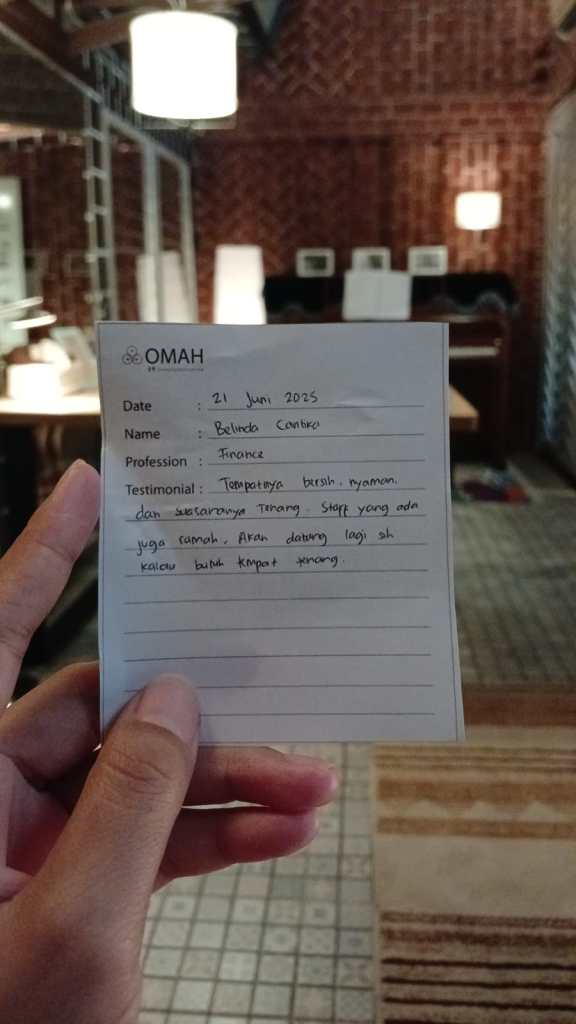 OMAH
Date : 21 Juni 2025
Name : Belinda Cantika
Profession : Finance
Testimonial : Tempatnya bersih, nyaman,
dan suasananya tenang. Staff yang ada
juga ramah. Akan datang lagi sih
kalau butuh tempat tenang.